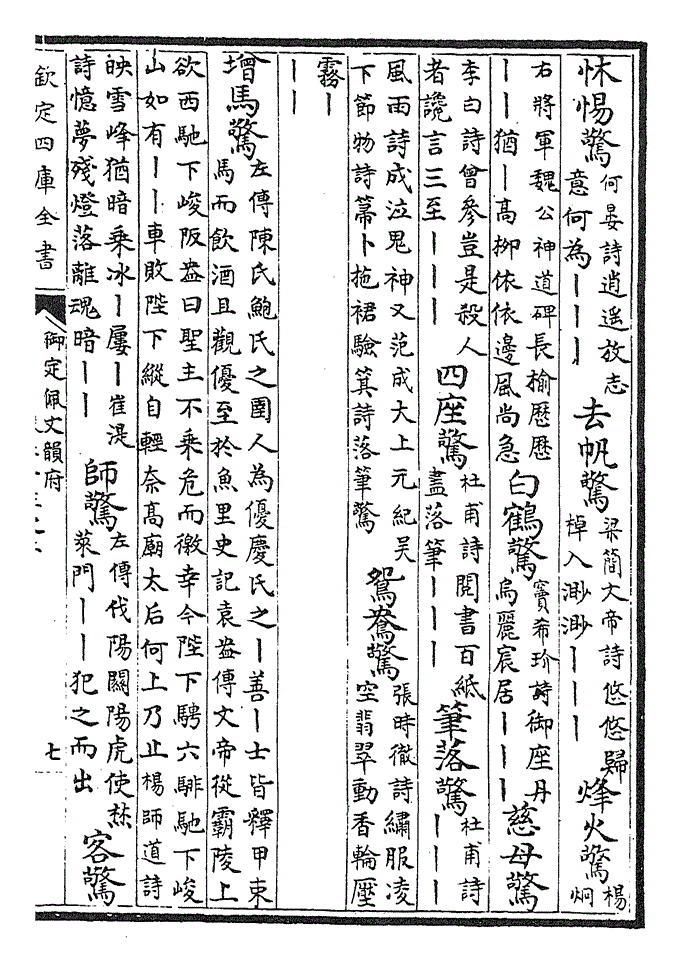 怵惕驚
何晏詩逍遥放志
意何為丨丨丨
去帆驚
梁簡文帝詩悠悠歸
棹入渺渺丨丨丨
烽火驚
楊
炯
右將軍魏公神道碑長榆歷歷
丨丨猶丨高栁依依邊風尚急
白鶴驚
竇希玠詩御座丹
烏麗宸居丨丨丨
慈母驚
李白詩曾參豈是殺人
者讒言三至丨丨丨
四座驚
杜甫詩閱書百紙
盡落筆丨丨丨
筆落驚
杜甫詩
丨丨丨
風雨詩成泣鬼神又范成大上元紀吴
下節物詩箒卜拖裙驗箕詩落筆驚
鴛鴦驚
張時徹詩繡服凌
空翡翠動香輪壓
霧丨
丨丨
增馬驚
左傳陳氏鮑氏之圉人為優慶氏之丨善丨士皆釋甲束
馬而飲酒且觀優至於魚里史記袁盎傳文帝從霸陵上
欲西馳下峻阪盎曰聖主不乘危而徼幸今陛下騁六騑馳下峻
山如有丨丨車敗陛下縱自輕奈高廟太后何上乃止楊師道詩
映雪峰猶暗乘冰丨屢丨崔湜
詩憶夢殘燈落離魂暗丨丨
師驚
左傳伐陽關陽虎使焚
萊門丨丨犯之而出
客驚
欽定四庫全書
御定佩文韻府
七